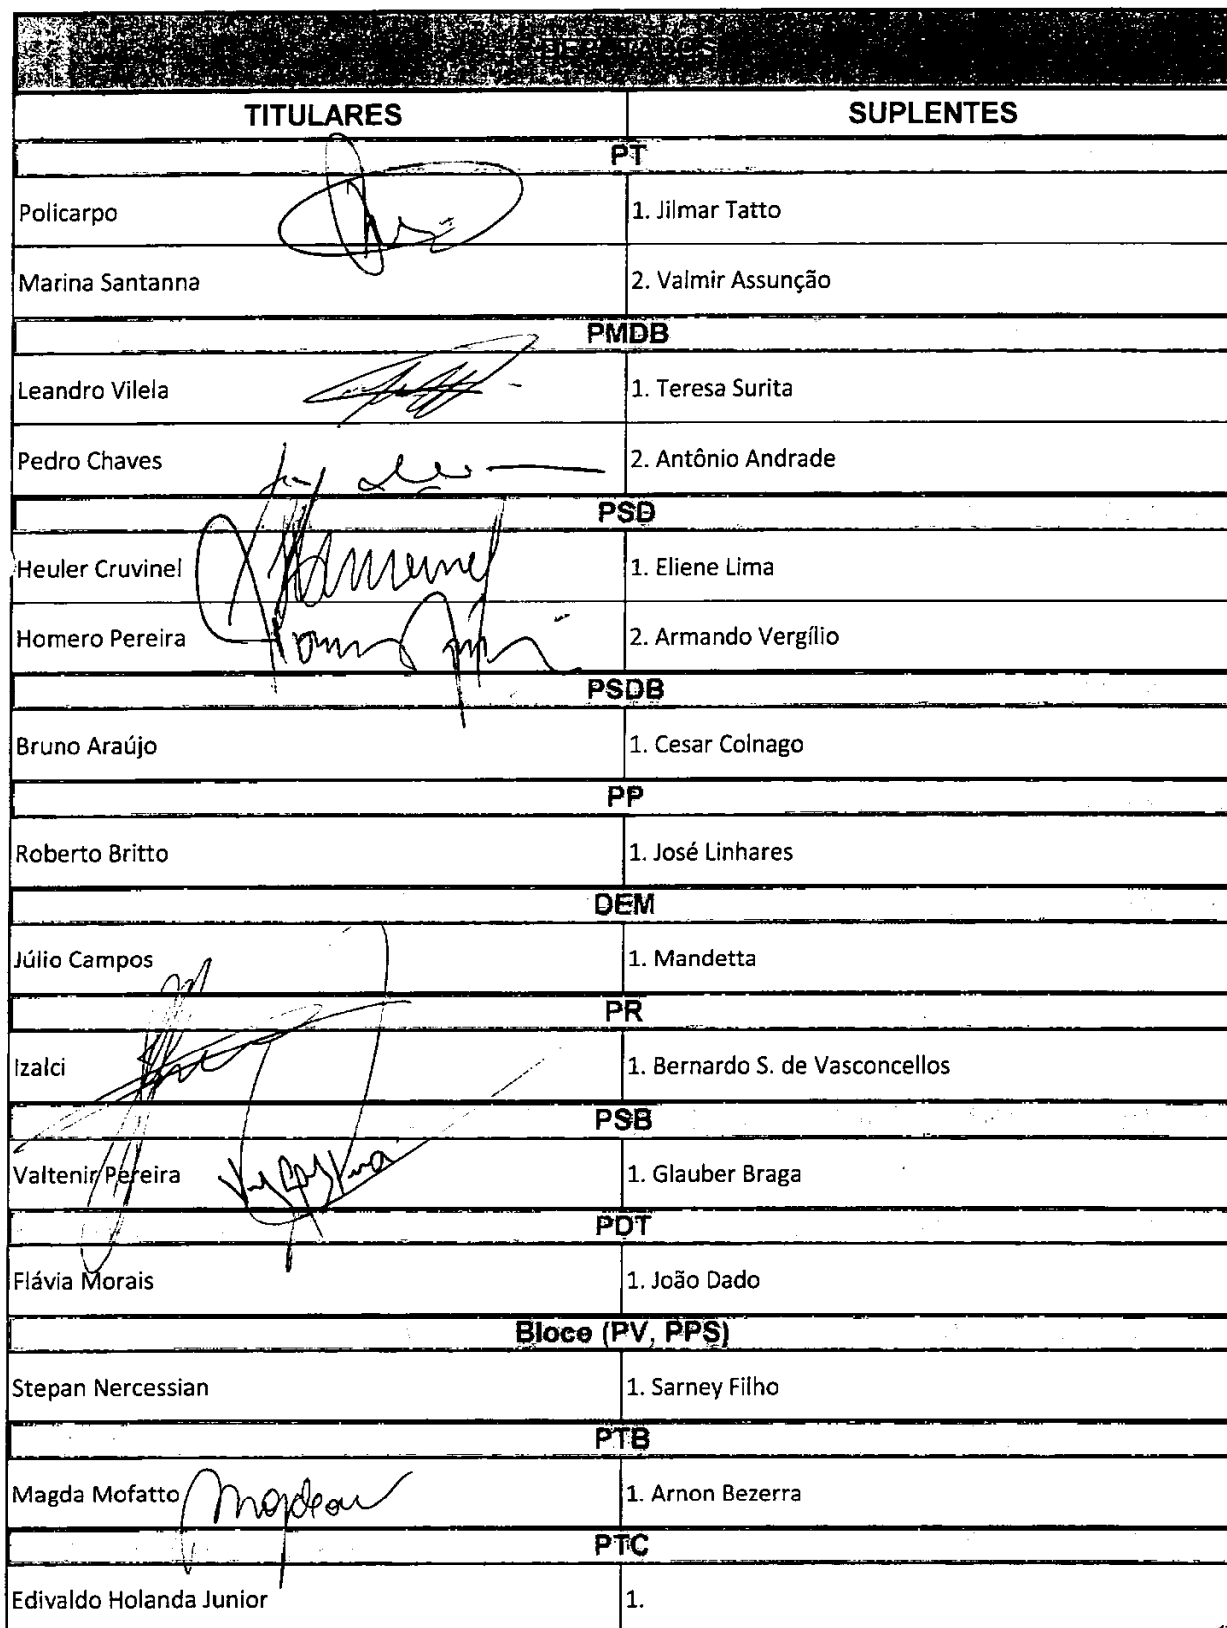 DEPUTADOS
TITULARES SUPLENTES
PT
Policarpo 1. Jilmar Tatto
Marina Santanna 2. Valmir Assunção
PMDB
Leandro Vilela 1. Teresa Surita
Pedro Chaves 2. Antônio Andrade
PSD
Heuler Cruvinel 1. Eliene Lima
Homero Pereira 2. Armando Vergílio
PSDB
Bruno Araújo 1. Cesar Colnago
PP
Roberto Britto 1. José Linhares
DEM
Júlio Campos 1. Mandetta
PR
Izalci 1. Bernardo S. de Vasconcellos
PSB
Valtenir Pereira 1. Glauber Braga
PDT
Flávia Morais 1. João Dado
Bloco (PV, PPS)
Stepan Nercessian 1. Sarney Filho
PTB
Magda Mofatto 1. Arnon Bezerra
PTC
Edivaldo Holanda Junior 1.